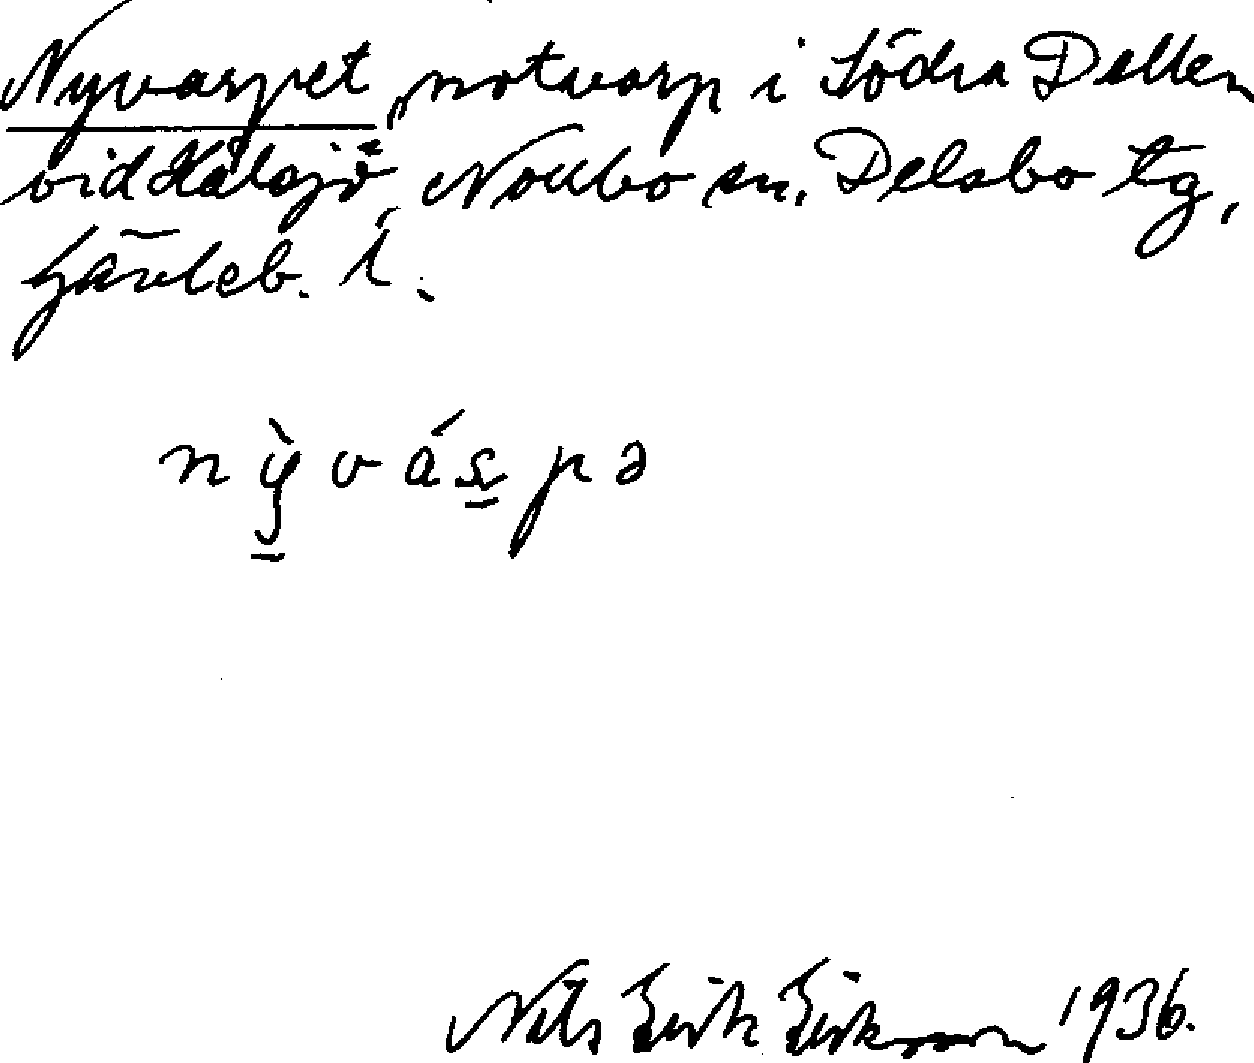 Nyvarpet, notvarp i Södra Dellen
vid Hålsjö, Norrbo sn. Delsbo tg,
Gävleb. l.
nỳvás̲pə
Nils Erik Eriksson 1936.